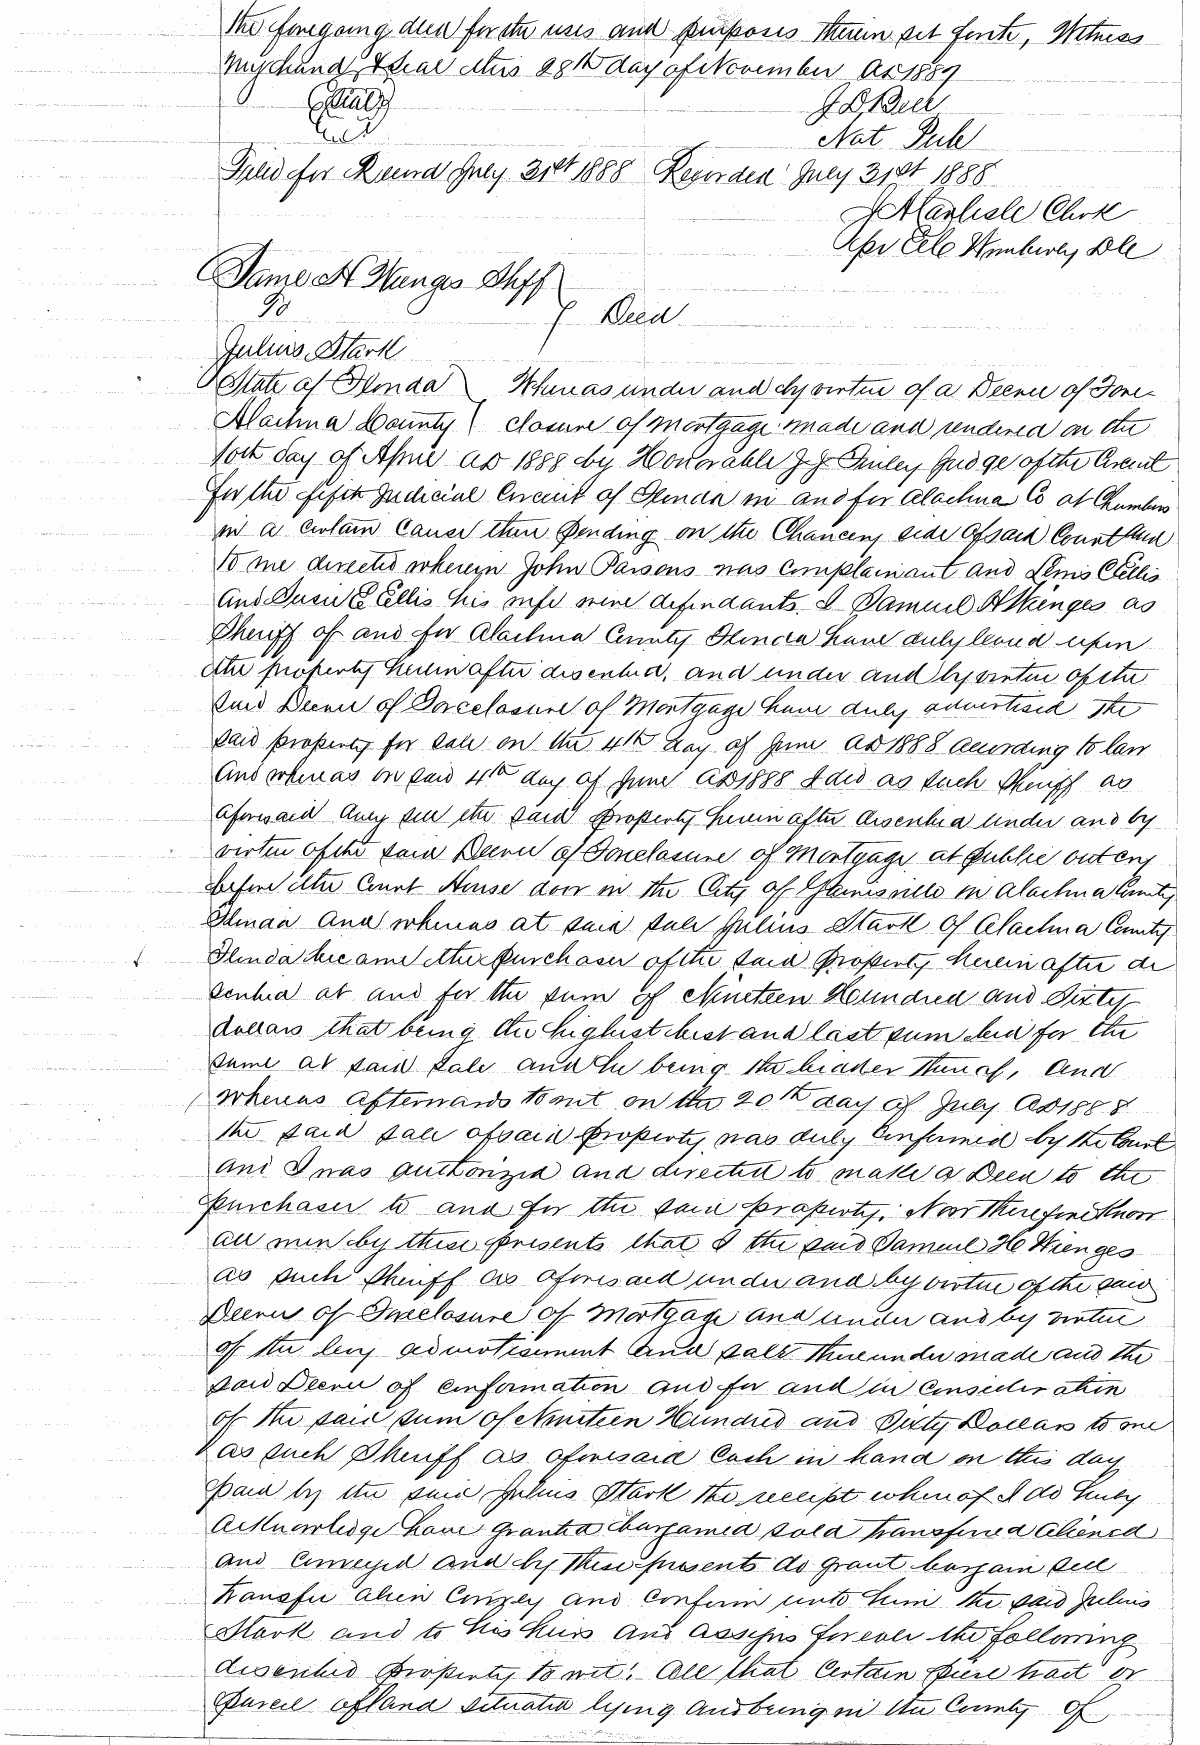 the foregoing deed for the uses and purposes therein set forth, Witness
my hand & seal this 28th day of November AD 1889
(Seal)
J D Bell
Nat Pub
Filed for Record July 31st 1888 Recorded July 31st 1888
J A Carlisle Clerk
per Wimberley DC
Saml H Wienges Shff
To
Deed
Julius Stark
State of Florida Whereas under and by virtue of a Decree of Fore-
Alachua County closure of Mortgage made and rendered on the
10th day of April AD 1888 by Honorable J J Finley Judge of the Circuit
for the fifth Judicial Circuit of Florida in and for Alachua Co at Chambers
in a certain cause then pending on the Chancery side of said Court and
to me directed wherein John Parsons was complainant and Lewis C Ellis
and Susie E Ellis his wife were defendants. I Samuel H Wienges as
Sheriff of and for Alachua County Florida have duly levied upon
the property herein after described, and under and by virtue of the
said Decree of Foreclosure of Mortgage have duly advertised the
said property for sale on the 4th day of June AD 1888 according to law
And whereas on said 4th day of June AD 1888 I did as such Sheriff as
aforesaid duly sell the said property herein after described under and by
virtue of the said Decree of Foreclosure of Mortgage at public outcry
before the Court House door in the City of Gainesville in Alachua County
Florida And whereas at said sale Julius Stark of Alachua County
Florida became the purchaser of the said property herein after de
scribed at and for the sum of Nineteen Hundred and Sixty
dollars that being the highest best and last sum bid for the
same at said sale and he being the bidder thereof, And
whereas afterwards to wit on the 20th day of July AD 1888
the said sale of said property was duly confirmed by the Court
and I was authorized and directed to make a Deed to the
purchaser to and for the said property. Now Therefore Know
all men by these presents that I the said Samuel H Wienges
as such Sheriff as aforesaid under and by virtue of the said
Decree of Foreclosure of Mortgage and under and by virtue
of the levy advertisement and sale thereunder made and the
said Decree of confirmation and for and in consideration
of the said sum of Nineteen Hundred and Sixty Dollars to me
as such Sheriff as aforesaid Cash in hand on this day
paid by the said Julius Stark the receipt whereof I do hereby
Acknowledge have granted bargained sold transferred aliened
and conveyed and by these presents do grant bargain sell
transfer alien convey and confirm unto him the said Julius
Stark and to his heirs and assigns forever the following
described property to wit: All that certain piece tract or
parcel of land situated lying and being in the County of